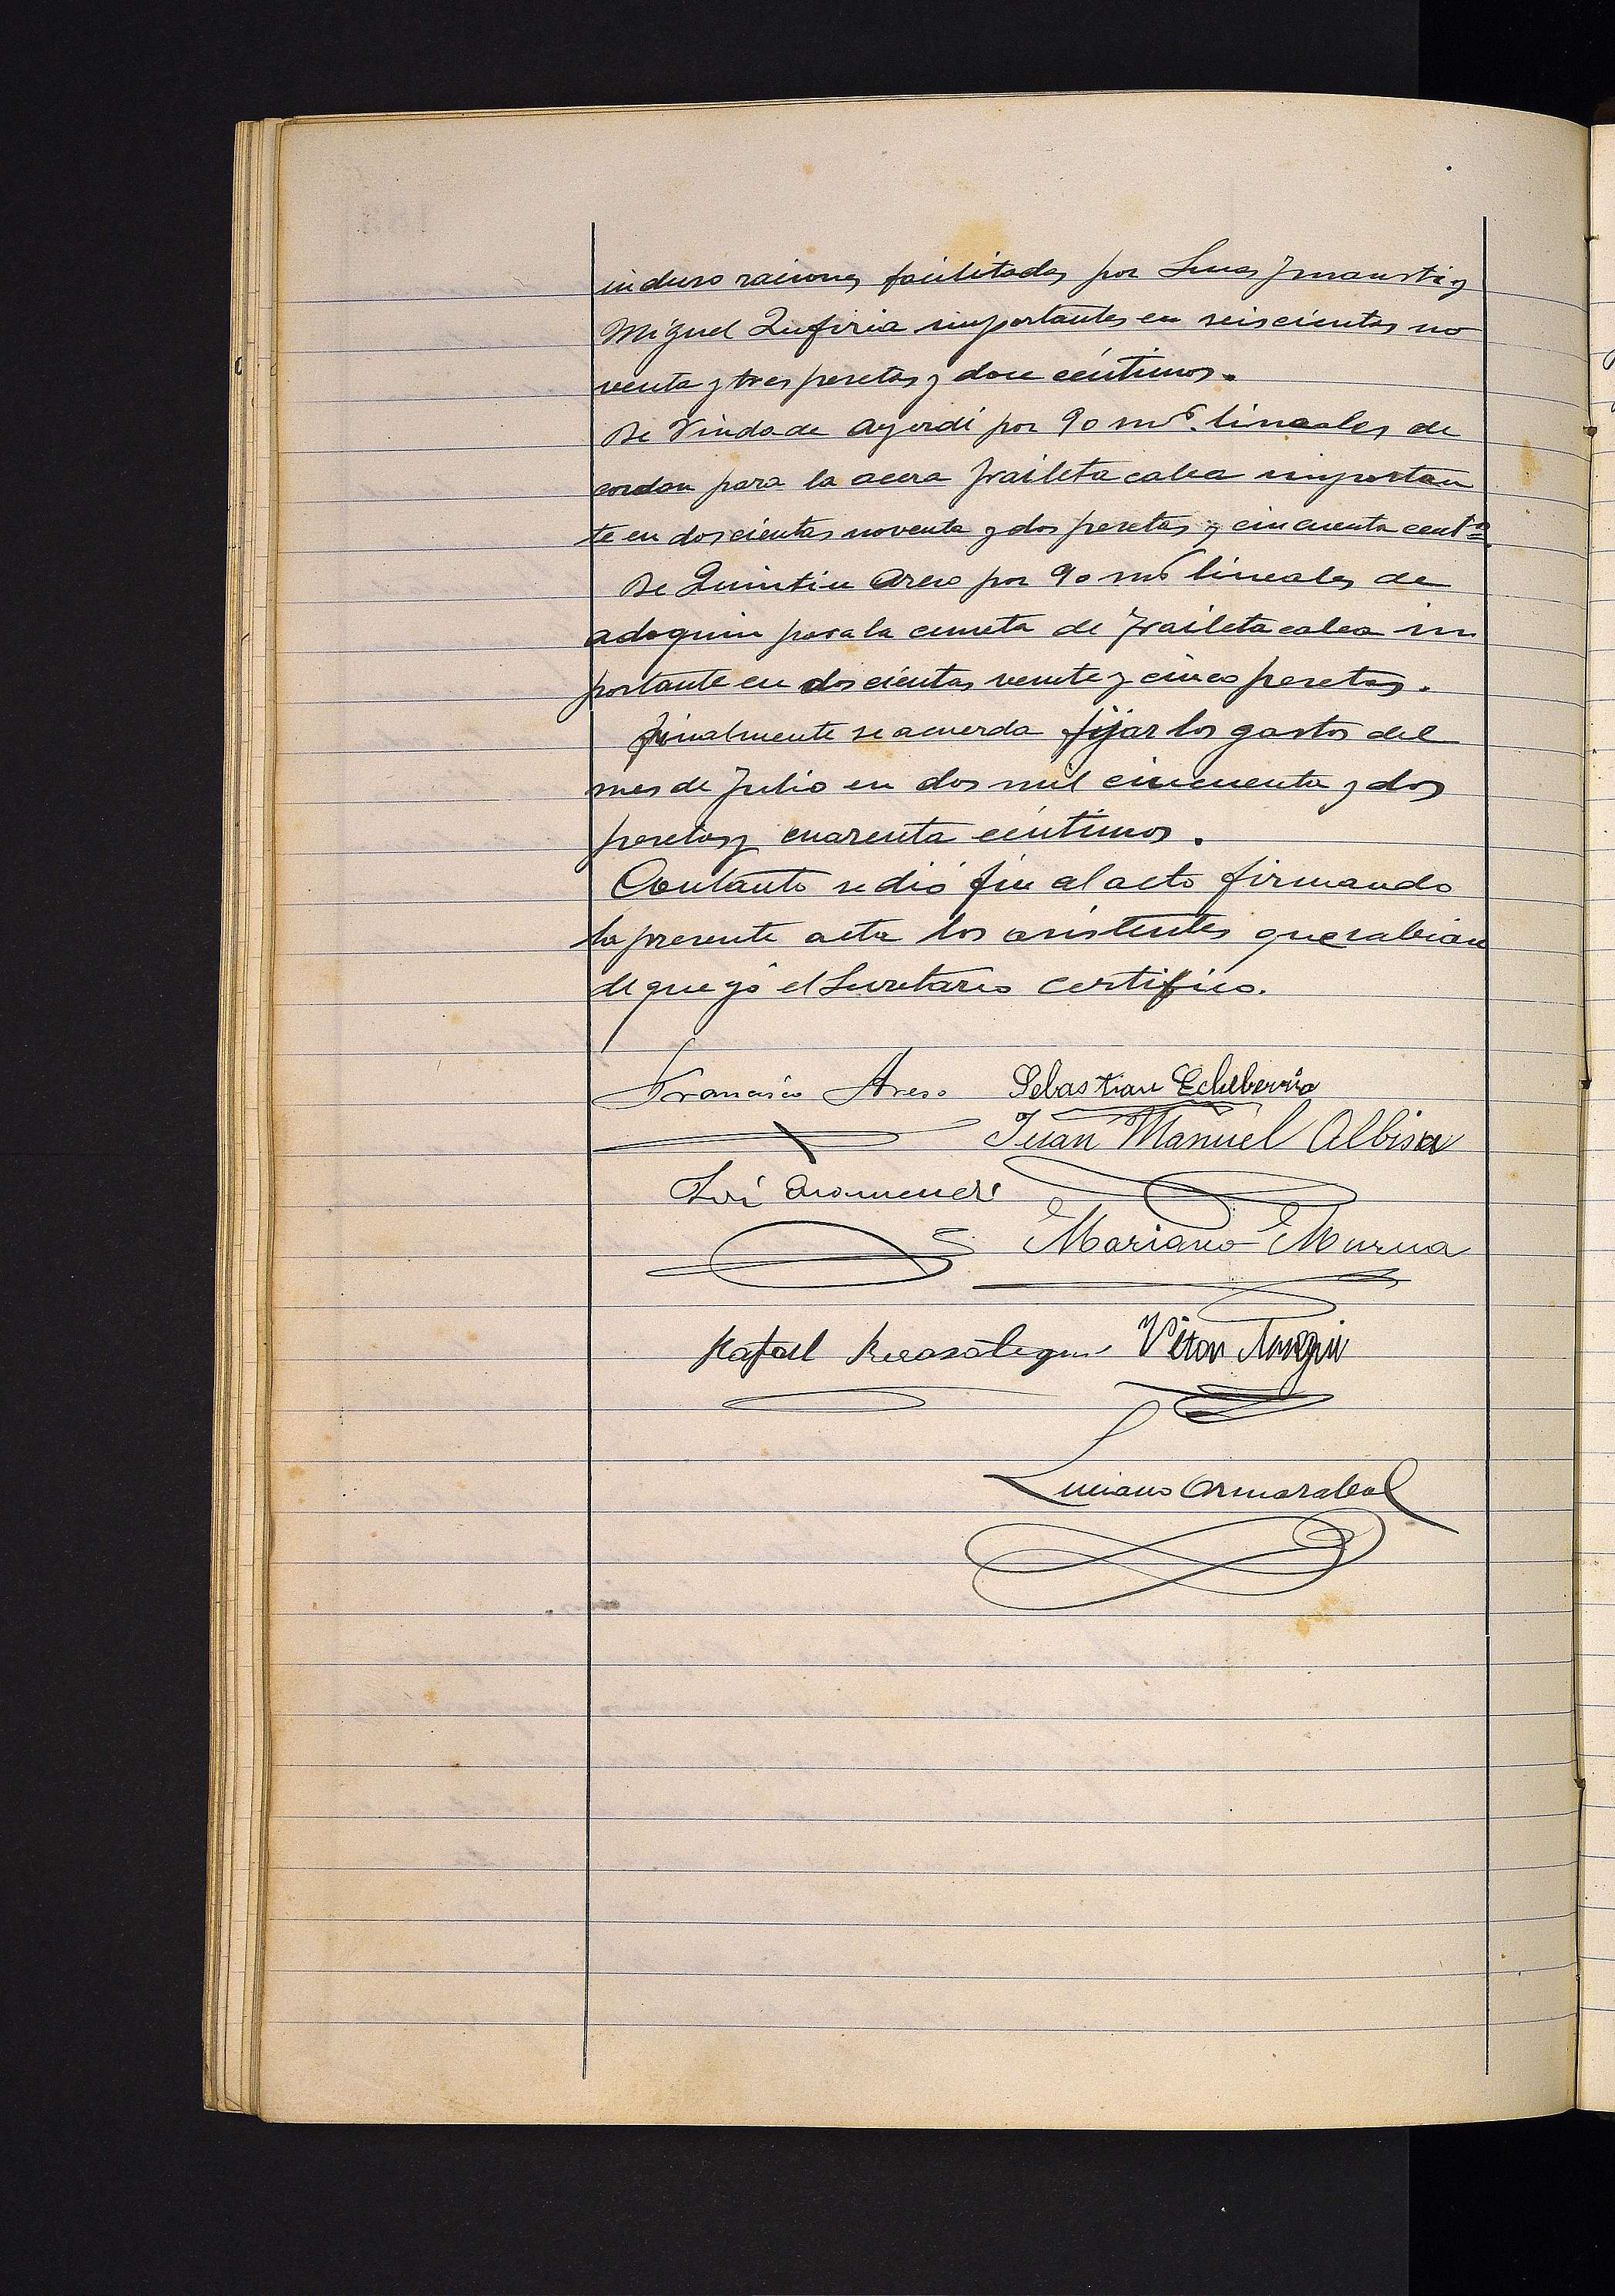 incluso raciones facilitadas por Lucas Imausti y
Miguel Zufiria importantes en seiscientas no
venta y tres pesetas y doce céntimos.
De Viuda de Ayerdi por 90 mˢ. lineales de
cordon para la acera Fraileta calea importan
te en doscientas noventa y dos pesetas y cincuenta centˢ
De Quintin Areso por 90 mˢ lineales de
adoquin para la cuneta de Fraileta calea im
portante en doscientas veinte y cinco pesetas.
Finalmente se acuerda fijar los gastos del
mes de Julio en dos mil cincuenta y dos
pesetas y cuarenta céntimos.
Contanto se dió fin al acto firmando
la presente acta los asistentes que sabian
de que yó el Secretario certifico.
Francisco Areso Sebastian Echeberria
Juan Manuel Albisu
José
Mariano Murua
Rafael Recasategui
Luciano Ormazabal